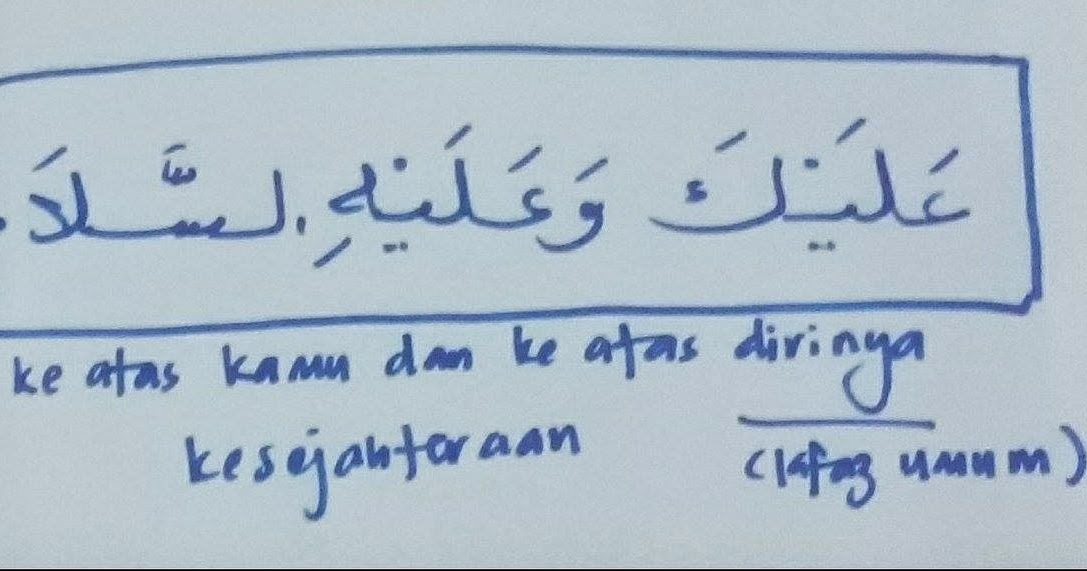 عَلَيْكَ وَعَلَيْهِ السَّلَا
ke atas kamu dan ke atas dirinya
kesejahteraan (lafaz umum)